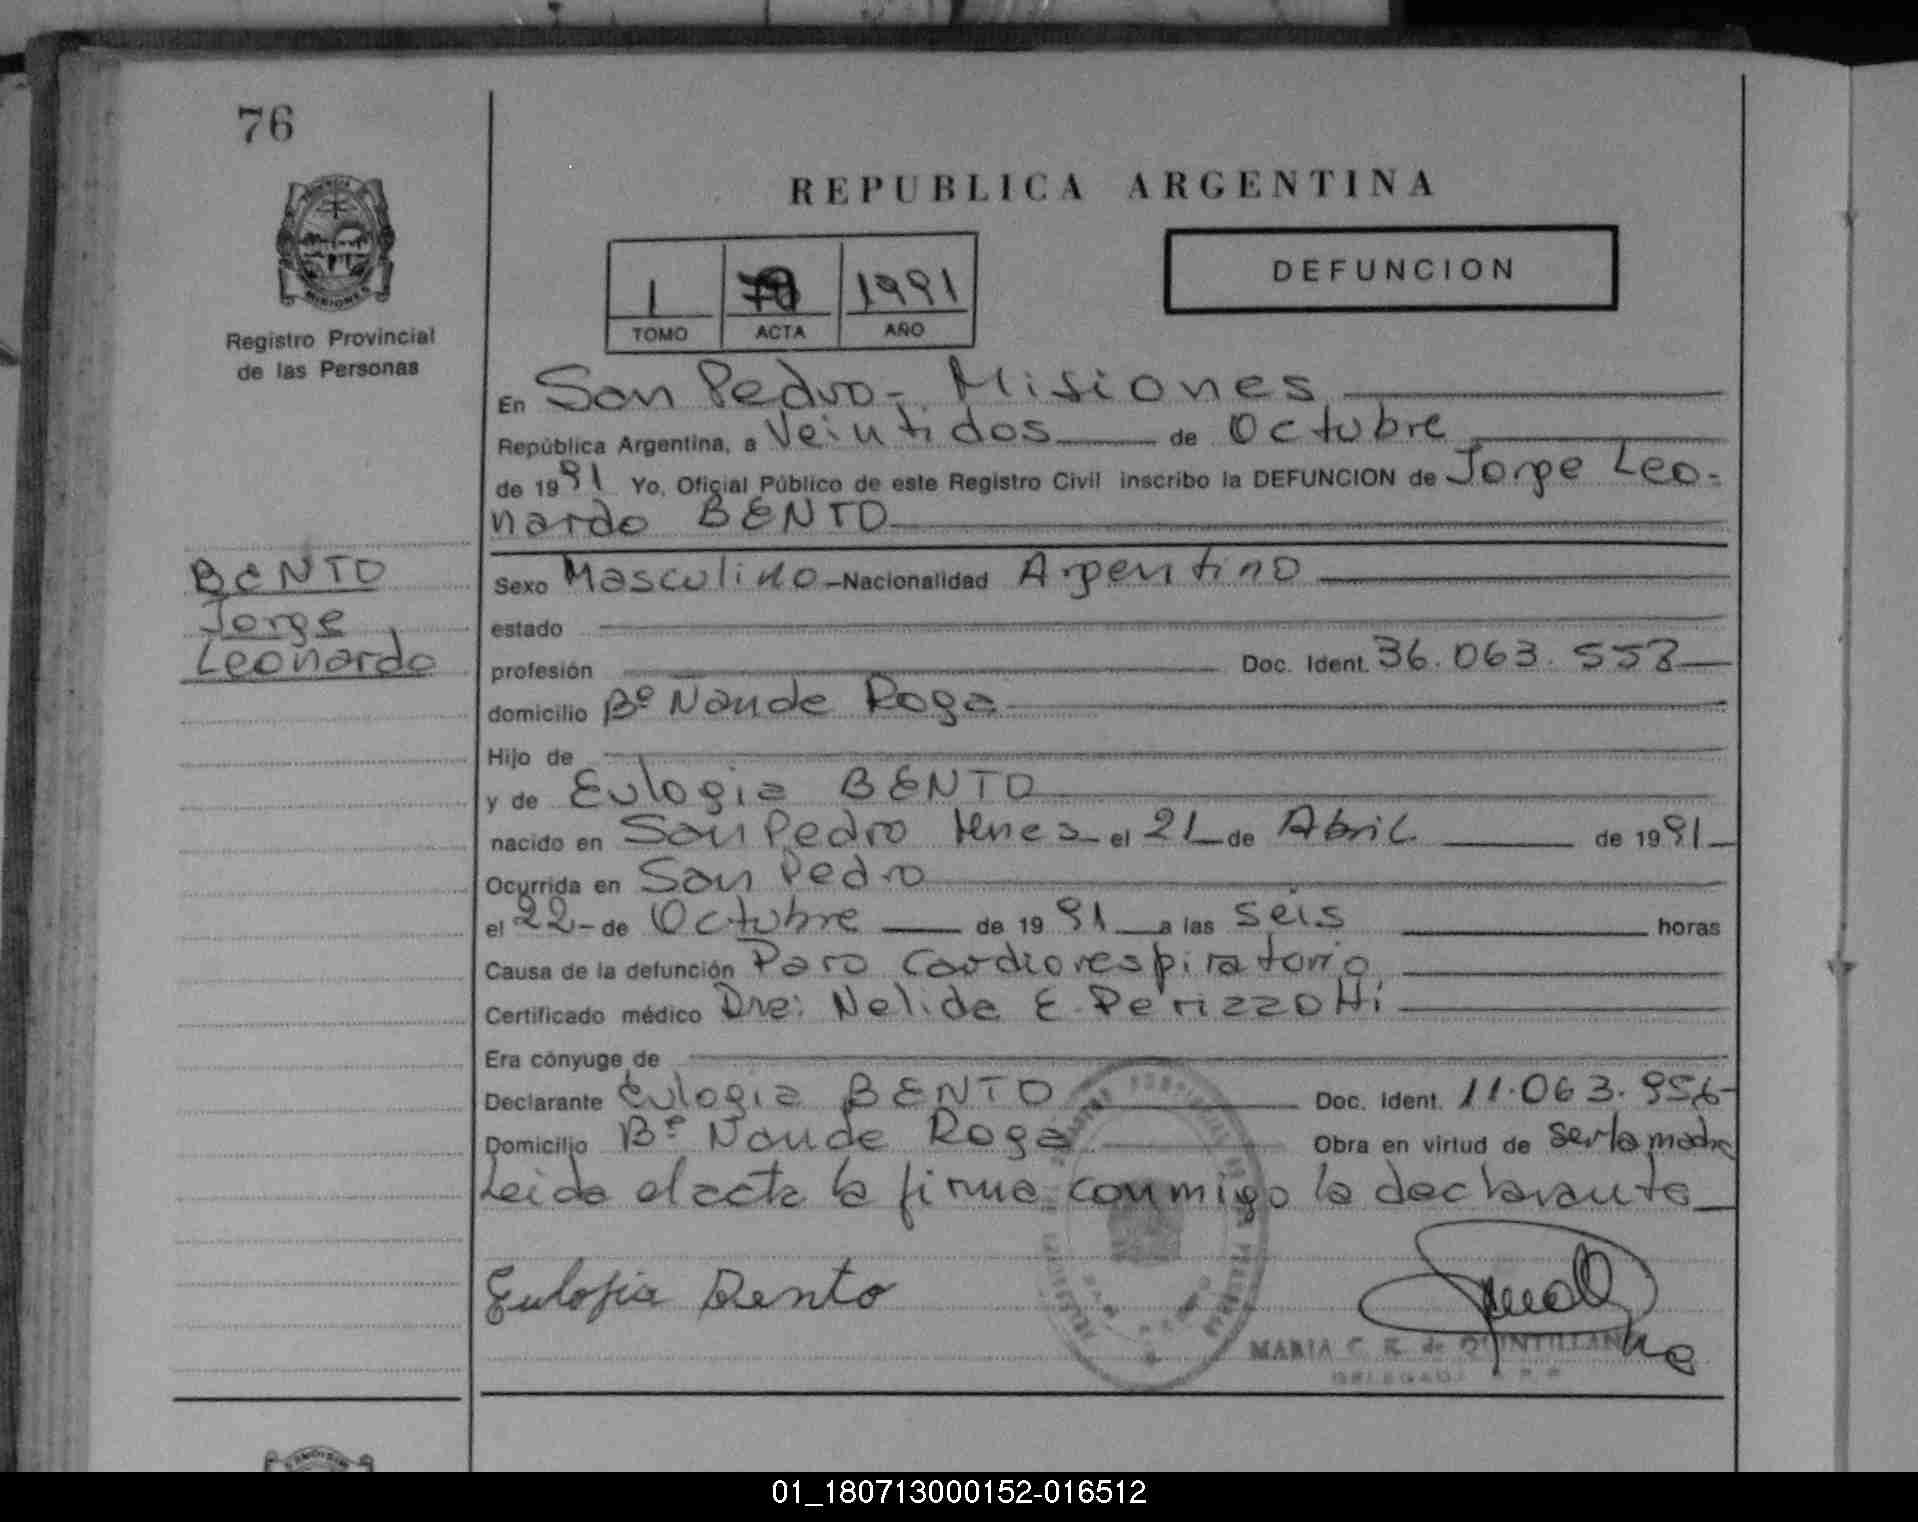 76
REPUBLICA ARGENTINA
DEFUNCION
1 1991
TOMO ACTA AÑO
MISIONES
Registro Provincial
de las Personas
En San Pedro - Misiones
República Argentina, a Veintidos de Octubre
de 1991 Yo, Oficial Público de este Registro Civil inscribo la DEFUNCION de Jorge Leo-
nardo BENTO
BENTO
Jorge
Leonardo
Sexo Masculino - Nacionalidad Argentino
estado
profesión Doc. Ident. 36.063.558
domicilio Bº Nande Roga
Hijo de
y de Eulogia BENTO
nacido en San Pedro Mnes el 21 de Abril de 1991
Ocurrida en San Pedro
el 22 - de Octubre de 1991 a las seis horas
Causa de la defunción Paro Cardiorespiratorio
Certificado médico Dra: Nelida E. Perizzotti
Era cónyuge de
Declarante Eulogia BENTO Doc. Ident. 11.063.956
Domicilio Bº Nande Roga Obra en virtud de ser la madre
Leida el acta la firma conmigo la declarante
Eulogia Bento
MARIA C. R. de QUINTILLAN
01_180713000152-016512